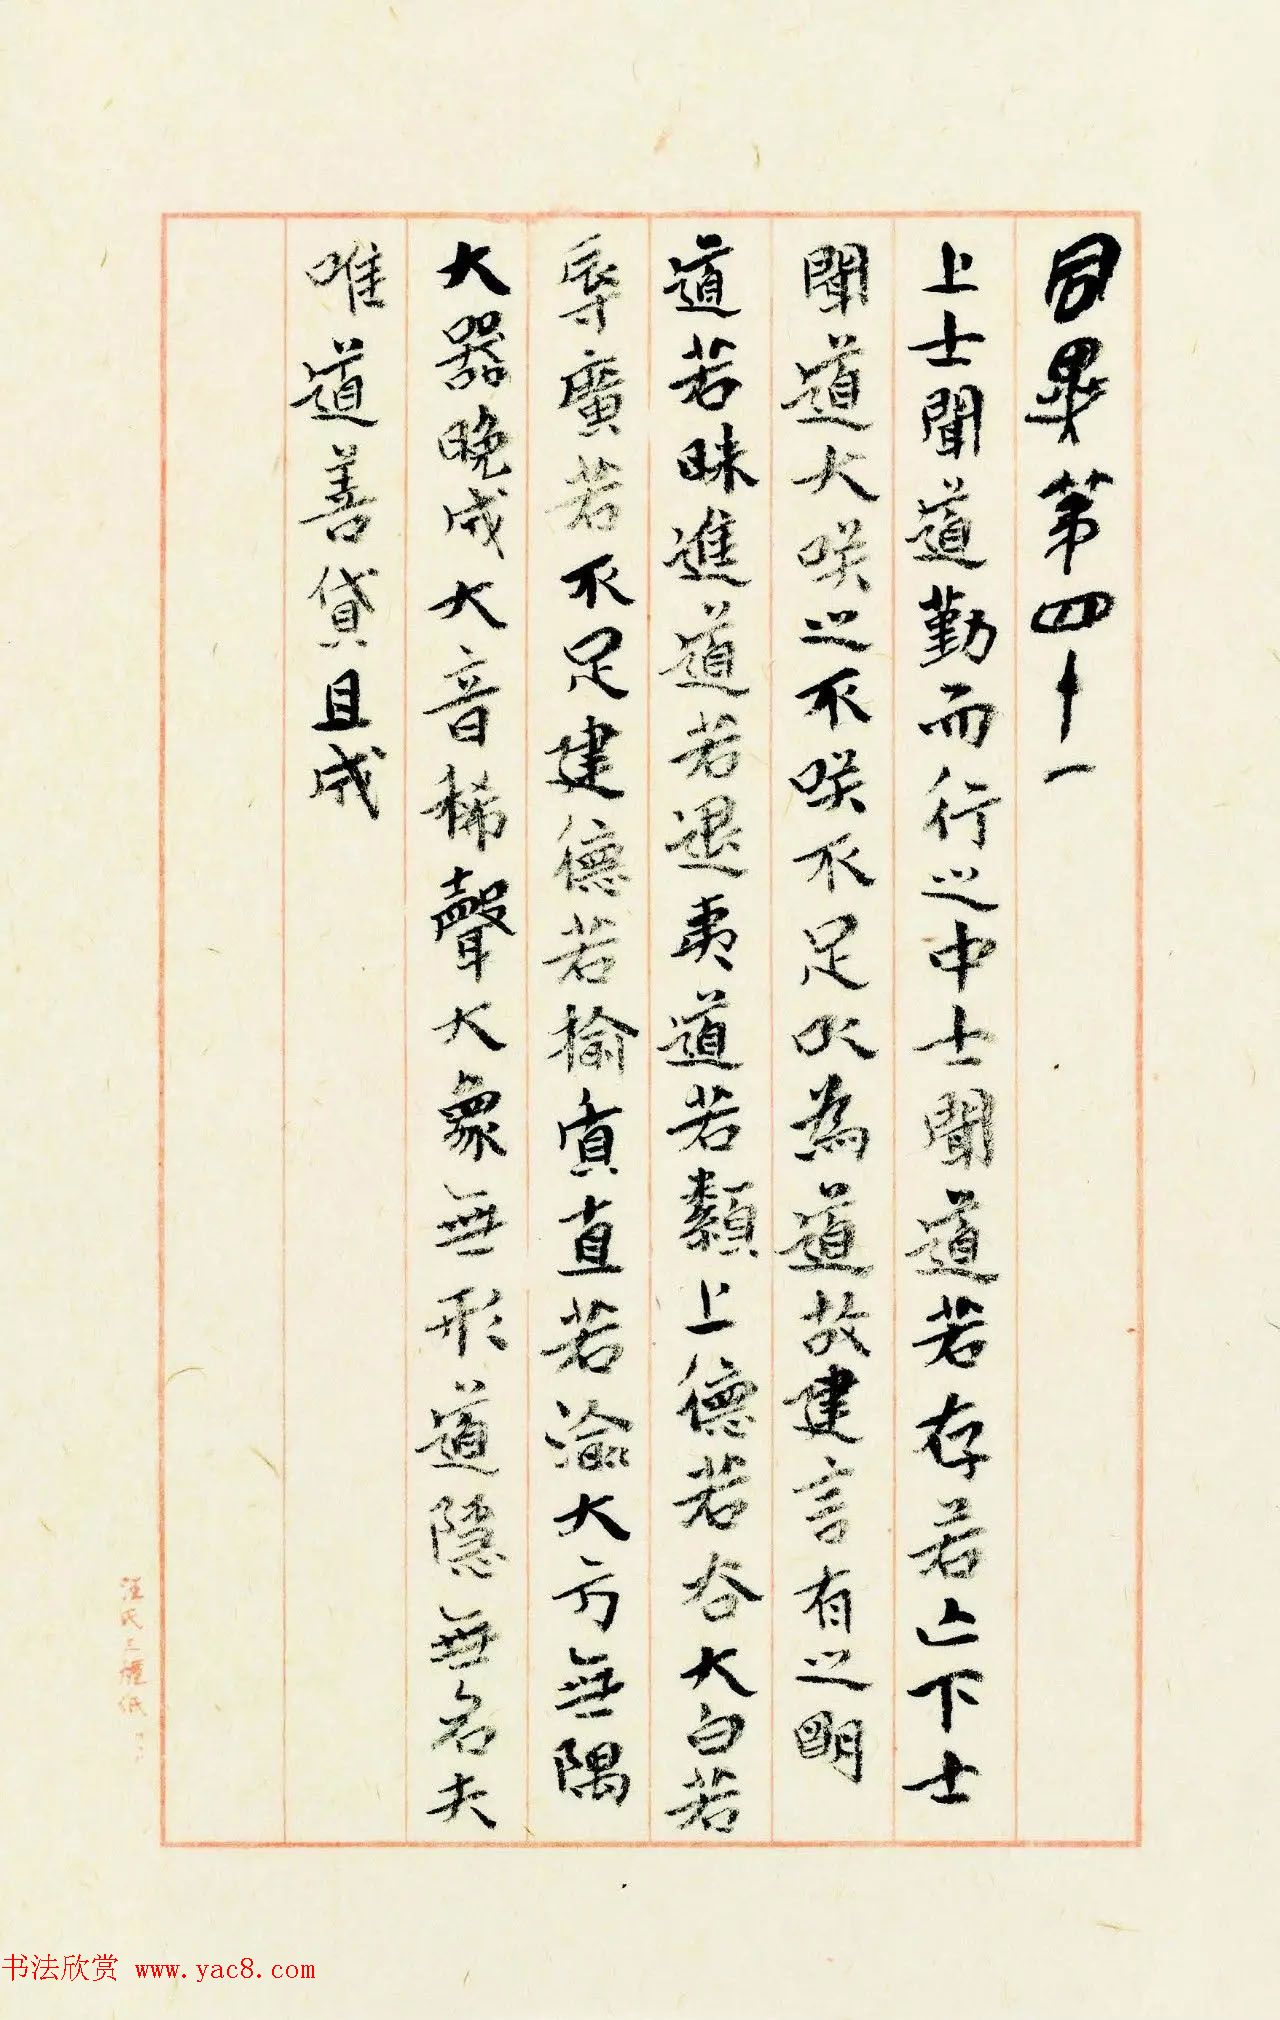 同異第四十一
上士聞道勤而行之中士聞道若存若亡下士
聞道大咲之不咲不足以為道故建言有之明
道若昧進道若退夷道若纇上德若谷大白若
辱廣若不足建德若揄質直若渝大方無隅
大器晚成大音稀聲大象無形道隱無名夫
唯道善貸且成
汪氏三禮紙
书法欣赏 www.yac8.com